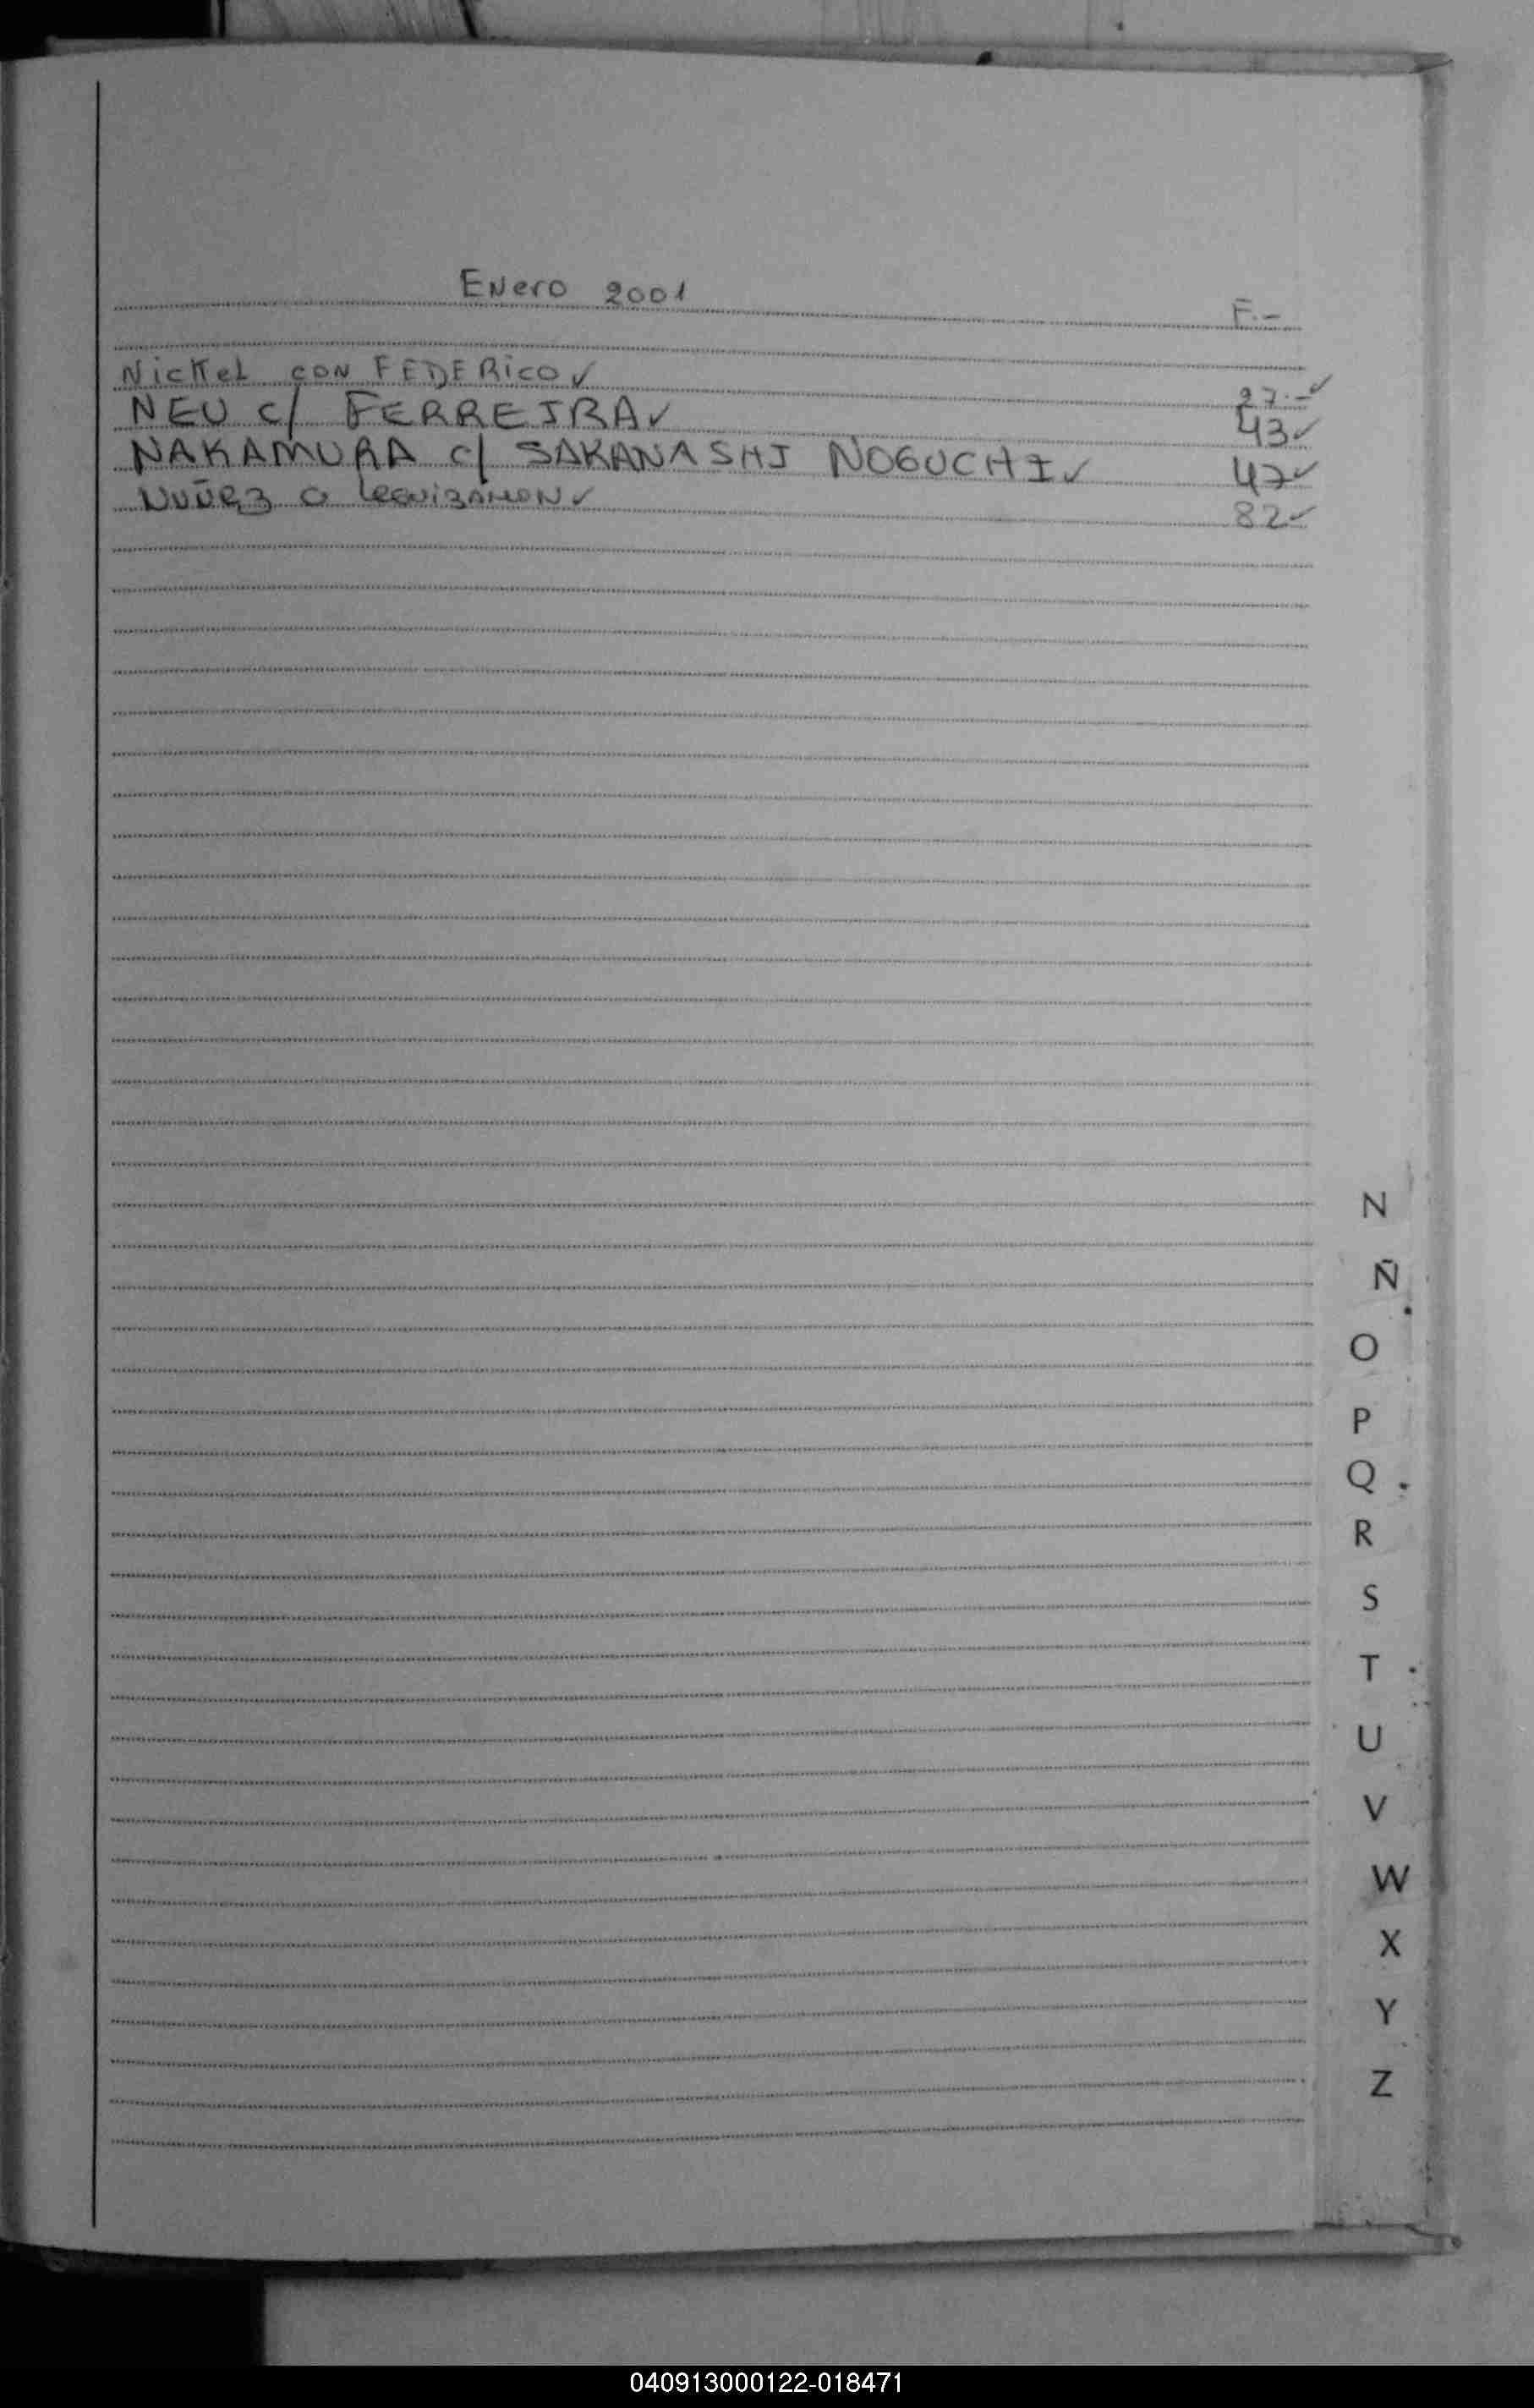 Enero 2001
F.-
Nickel con FEDERico ✓ 27.- ✓
NEU c/ FERREIRA ✓ 43 ✓
NAKAMURA c/ SAKANASHI NOGUCHI ✓ 47 ✓
NUÑEZ c LEGUIZAMON ✓ 82 ✓
N
Ñ
O
P
Q
R
S
T
U
V
W
X
Y
Z
040913000122-018471